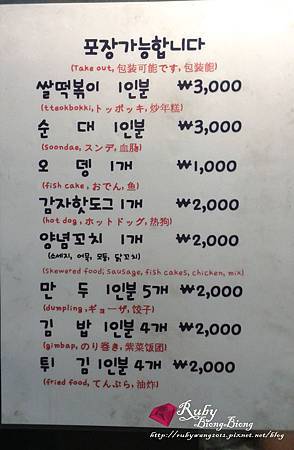 포장가능합니다
(Take out, 包装可能です, 包装能)
쌀떡볶이 1인분 ₩3,000
(tteokbokki, トッポッキ, 炒年糕)
순 대 1인분 ₩3,000
(soondae, スンデ, 血肠)
오 뎅 1개 ₩1,000
(fish cake, おでん, 鱼)
감자핫도그 1개 ₩2,000
(hot dog, ホットドッグ, 热狗)
양념꼬치 1개 ₩2,000
(소세지, 어묵, 모듬, 닭꼬치)
(skewered food; sausage, fish cakes, chicken, mix)
만 두 1인분 5개 ₩2,000
(dumpling, ギョーザ, 饺子)
김 밥 1인분 4개 ₩2,000
(gimbap, のり巻き, 紫菜饭团)
튀 김 1인분 4개 ₩2,000
(fried food, てんぷら, 油炸)
Ruby
Biong Biong
http://rubywang2012.pixnet.net/blog